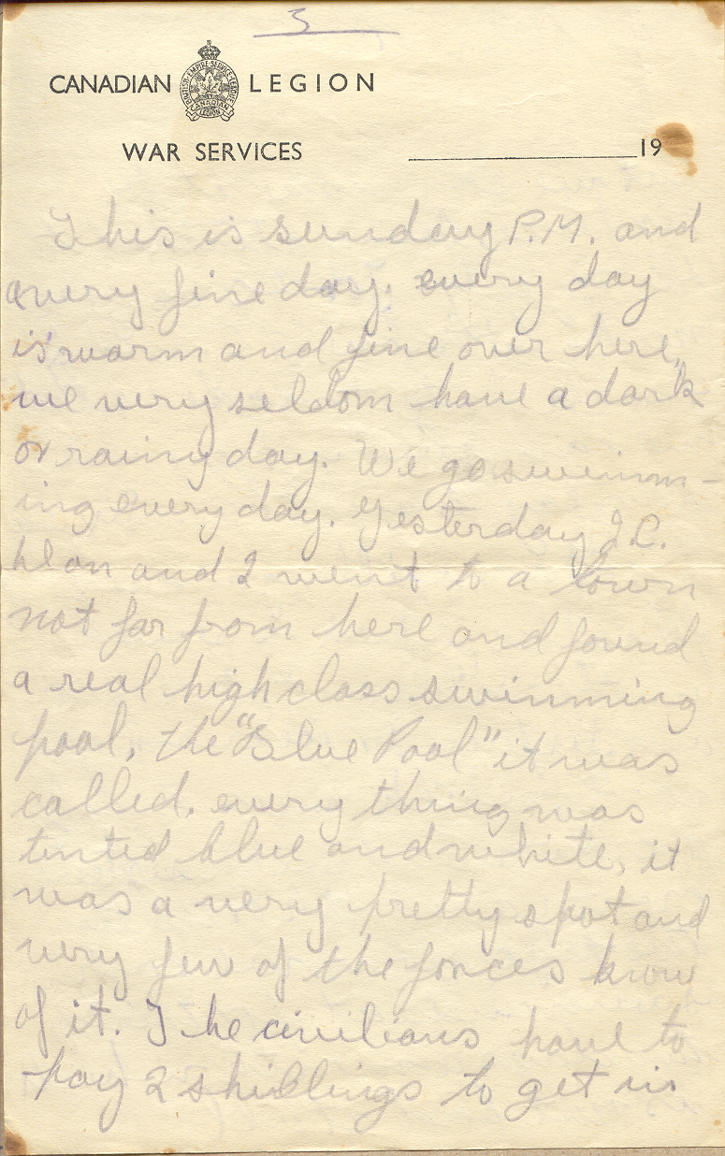 3
CANADIAN LEGION
BRITISH EMPIRE SERVICE LEAGUE
CANADIAN LEGION
WAR SERVICES
19
This is sunday P.M. and
a very fine day. every day
is warm and fine over here,
we very seldom have a dark
or rainy day. We go swimm-
ing every day. Yesterday
and I went to a town
not far from here and found
a real high class swimming
pool, the "Blue Pool" it was
called. every thing was
tinted blue and white, it
was a very pretty spot and
very few of the forces know
of it. The civilians have to
pay 2 shillings to get in